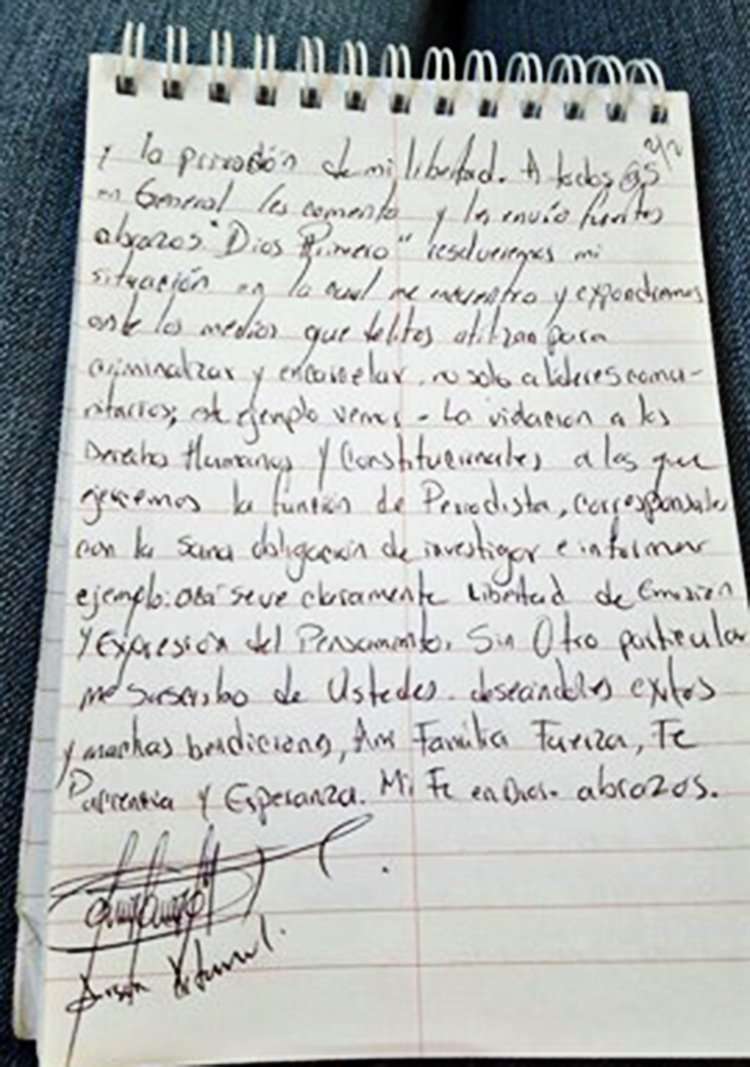 2/2
y la privación de mi libertad. A todos @s
en General les comento y les envío fuertes
abrazos "Dios Primero" resolveremos mi
situación en la cual me encuentro y expondremos
ante los medios que delitos utilizan para
criminalizar y encarcelar, no solo a lideres comu-
nitarios, de ejemplo vemos - La violación a los
Derechos Humanos y Constitucionales a los que
ejercemos la función de Periodista, corresponsales
con la sana obligación de investigar e informar
ejemplo: se ve claramente Libertad de Emisión
Y Expresión del Pensamiento. Sin Otro particular
me suscribo de Ustedes. deseandoles exitos
y muchas bendiciones, Ami Familia Fuerza, Fe
Paciencia y Esperanza. Mi Fe en Dios. abrazos.